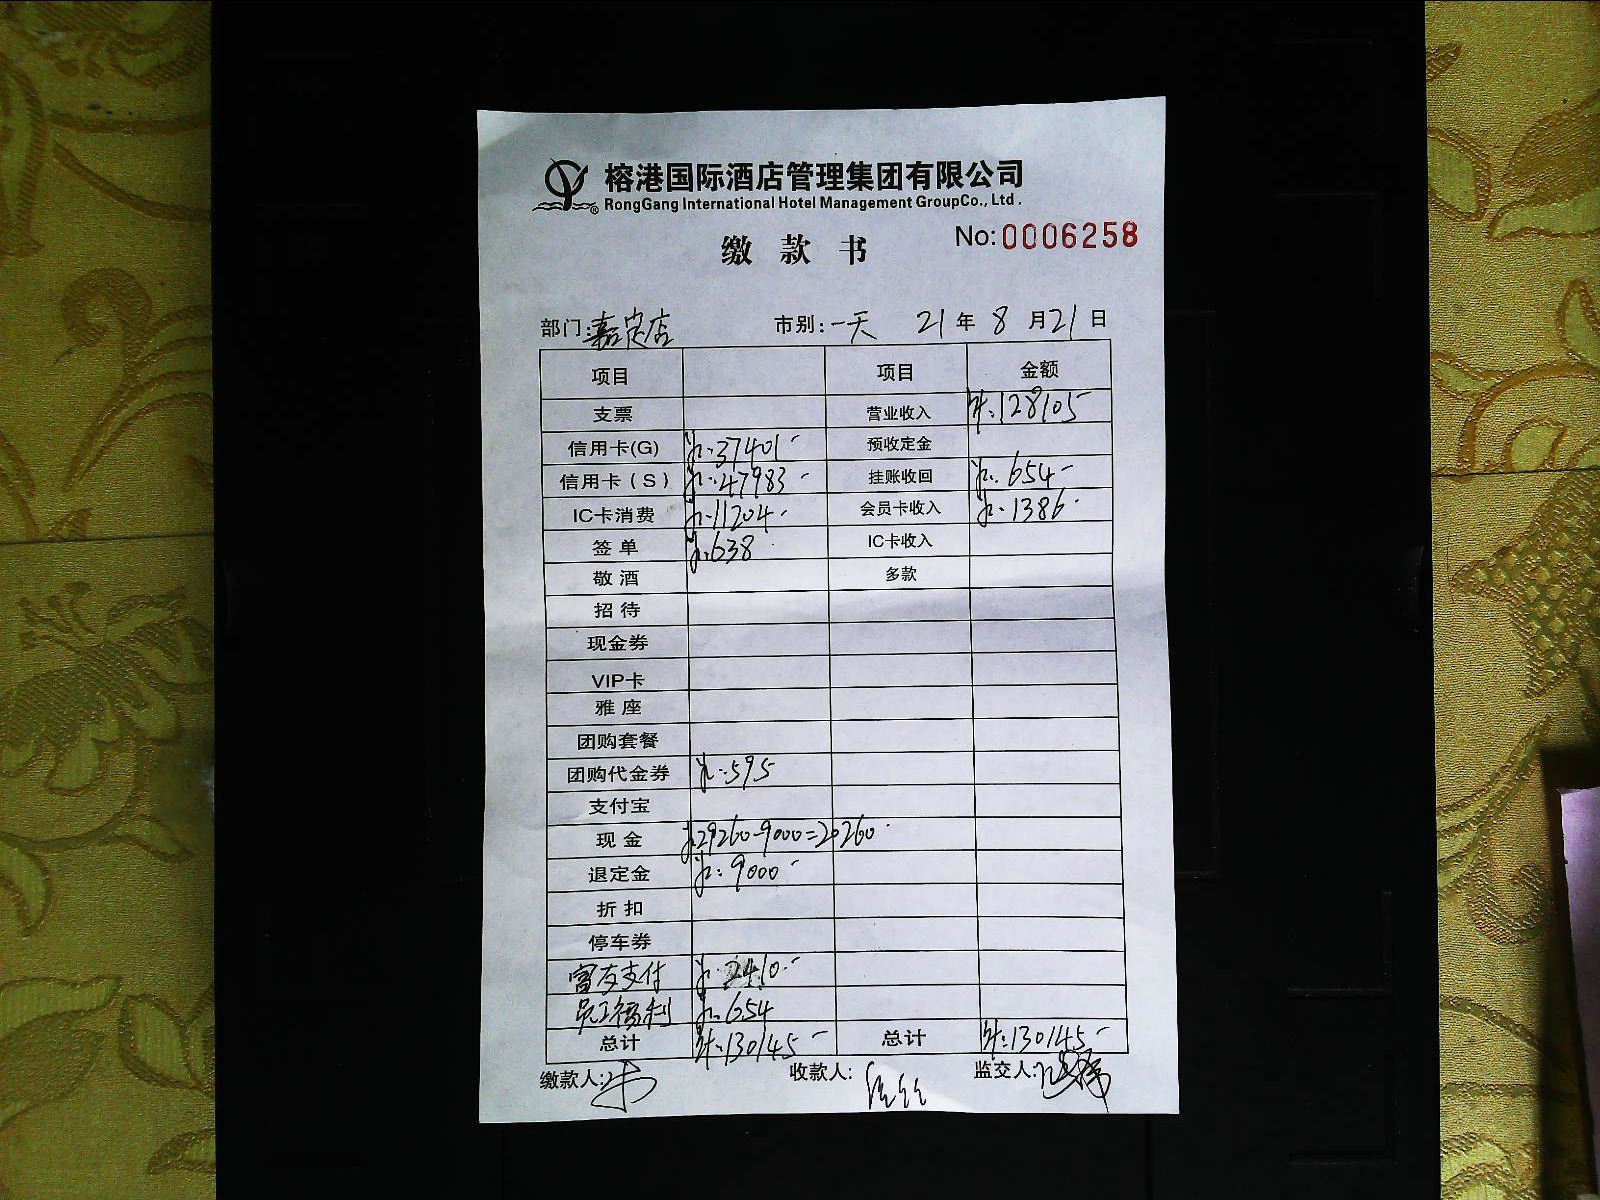 榕港国际酒店管理集团有限公司
RongGang International Hotel Management GroupCo., Ltd.
缴款书 No:0006258
部门:嘉定店 市别:一天 21年8月21日
项目 项目 金额
支票 营业收入 128105
信用卡(G) 37401 预收定金
信用卡(S) 47983 挂账收回 654
IC卡消费 11204 会员卡收入 1386
签单 638 IC卡收入
敬酒 多款
招待
现金券
VIP卡
雅座
团购套餐
团购代金券 595
支付宝
现金 29260-9000=20260
退定金 9000
折扣
停车券
富友支付 2410
员工福利 654
总计 130145 总计 130145
缴款人: 收款人: 监交人: